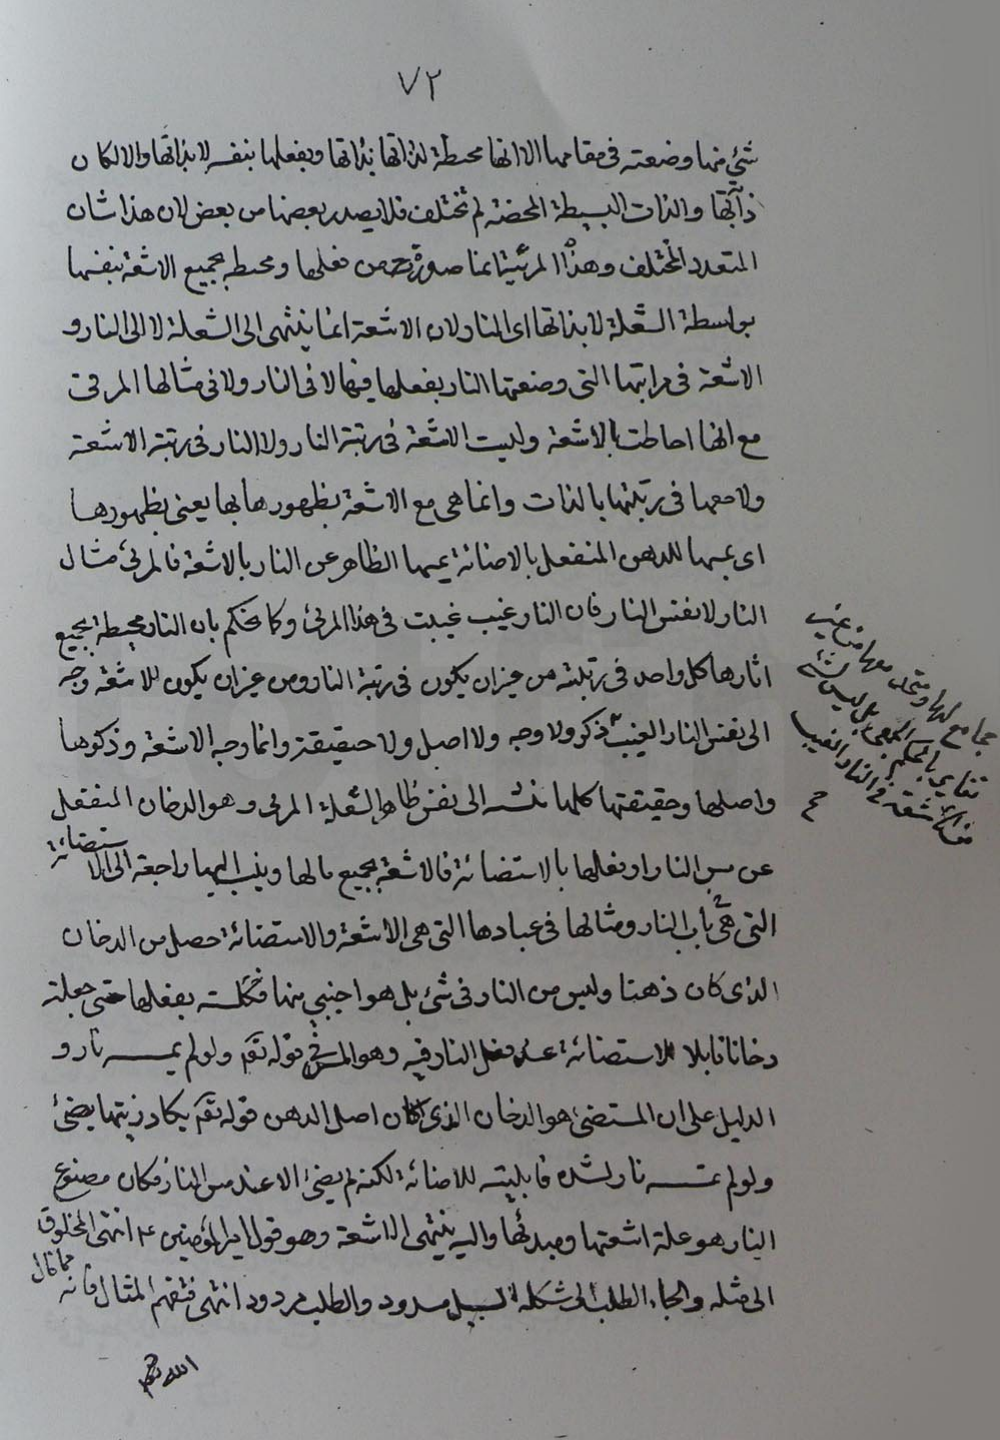 ٧٢
شئ منها وضعته في مقامها الا انها محيطة لذاتها بذاتها وبفعلها بنفسه لا بذاتها والا لكان
ذاتها والذات البسيطة المحضة لم تختلف فلا يصدر بعضها من بعض لان هذا شان
المتعدد المختلف وهذا المرئية انما صورة من فعلها ومحيطه بجميع الاشعة بنفسها
بواسطة الشعلة لا بذاتها اى النار لان الاشعة انما ينتهى الى الشعلة لا الى النار و
الاشعة فى مراتبها التى وضعتها النار بفعلها فيها لا فى النار ولا فى مثالها المرئ
مع انها احاطت بالاشعة وليست الاشعة فى رتبة النار ولا النار فى رتبة الاشعة
ولا معها فى رتبتها بالذات وانما هى مع الاشعة بظهورها بها يعنى بظهورها
اى بمسها للدهن المنفعل بالاضائة بمسها الظاهر عن النار بالاشعة فالمرئ مثال
النار لا نفس النار فان النار غيب غيبت فى هذا المرئ وكما تحكم بان النار محيطة بجميع
اثارها كل واحد فى رتبته من غيران يكون فى رتبة النار ومن غيران يكون للاشعة وجه
الى نفس النار الغيب ذكر ولا وجه ولا اصل ولا حقيقة وانما وجه الاشعة وذكرها
واصلها وحقيقتها كلها الى نفس ظاهر الشعلة المرئ وهو الدخان المنفعل
عن مس النار او بفعلها بالاستضائة فالاشعة بجميع مالها وينسب اليها راجعة الى الاستضائة
التى هى باب النار ومثالها فى عبادها التى هى الاشعة والاستضائة حصل من الدخان
الذى كان دهنا وليس من النار فى شئ بل هو اجنبي منها فكلسته بفعلها حتى جعلته
دخانا قابلا للاستضائة عن فعل النار فيه وهو المس فى قوله تع ولو لم تمسسه نار و
الدليل على ان المستضئ هو الدخان الذى كان اصل الدهن قوله تع يكاد زيتها يضئ
ولو لم تمسسه نار لشدة قابليته للاضائة لكنه لم يضئ الا عند مس النار فكان مصنوع
النار هو علة اشعتها ومبدئها واليه ينتهى الاشعة وهو قول امير المؤمنين ع انتهى المخلوق
الى مثله والجاه الطلب الى شكله السبيل مسدود والطلب مردود انتهى فتفهم المثال فانه مما قال
الله